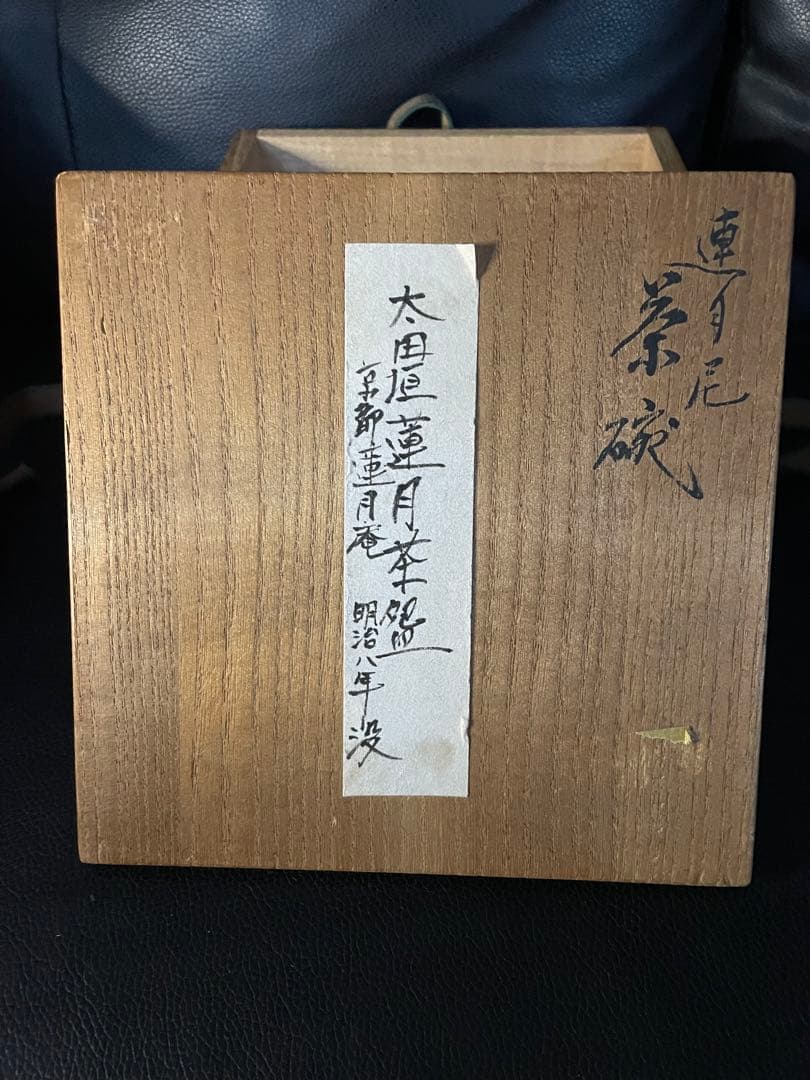 蓮月尼
茶碗
太田垣蓮月茶盌
京都蓮月庵 明治八年没